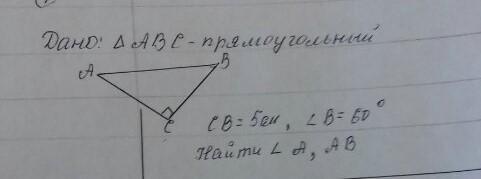 Дано: ΔABC - прямоугольный
A
B
C
CB = 5см, ∠B = 60°
Найти ∠A, AB